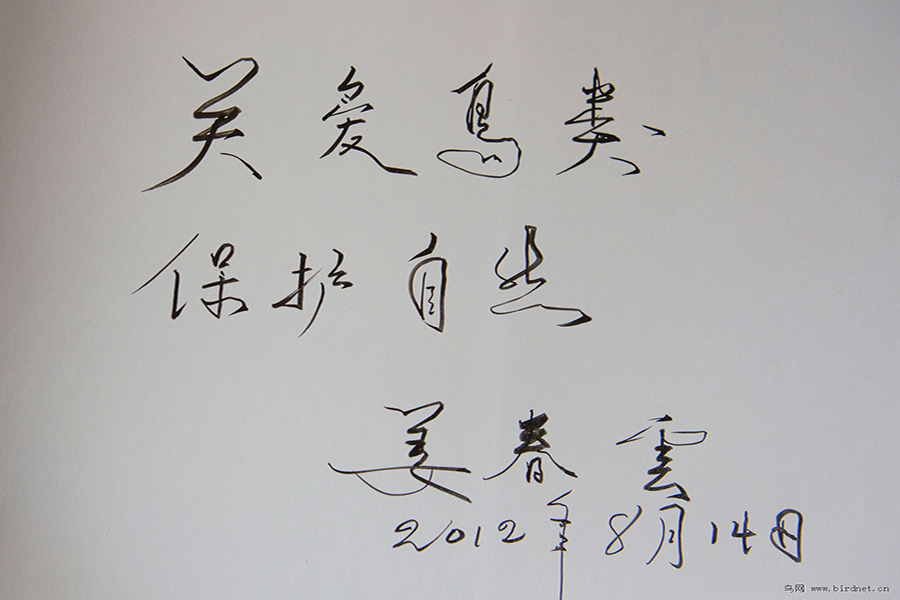 关爱鸟类
保护自然
姜春雲
2012年8月14日
鸟网 www.birdnet.cn